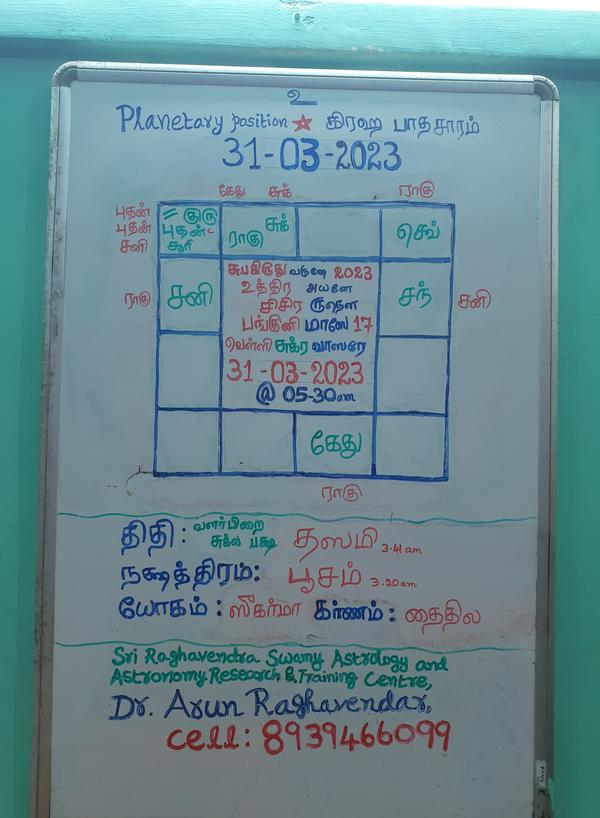 உ
Planetary position ★ கிரஹ பாதசாரம்
31-03-2023
கேது சுக் ராகு
புதன்
புதன்
சனி
குரு
புதன்
சூரி
ராகு சுக்
செவ்
ராகு
சனி
சந்
சனி
சுபகிருது வருஷே 2023
உத்திர அயனே
சிசிர ருதௌ
பங்குனி மாஸே 17
வெள்ளி சுக்ர வாஸரே
31-03-2023
@ 05-30am
கேது
ராகு
திதி : வளர்பிறை சுக்ல பக்ஷ தஸமி 3.41 am
நக்ஷத்திரம்: பூசம் 3.20am
யோகம் : ஸீகர்மா கர்ணம் : தைதில
Sri Raghavendra Swamy Astrology and
Astronomy Research & Training Centre,
Dr. Arun Raghavendar,
cell: 8939466099